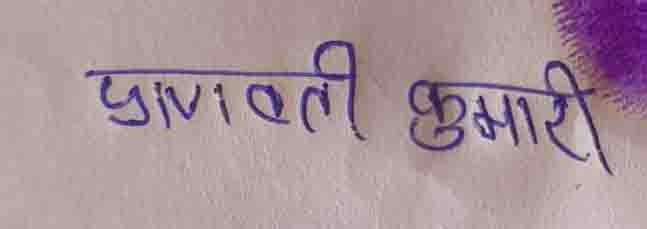 प्राणवती कुमारी